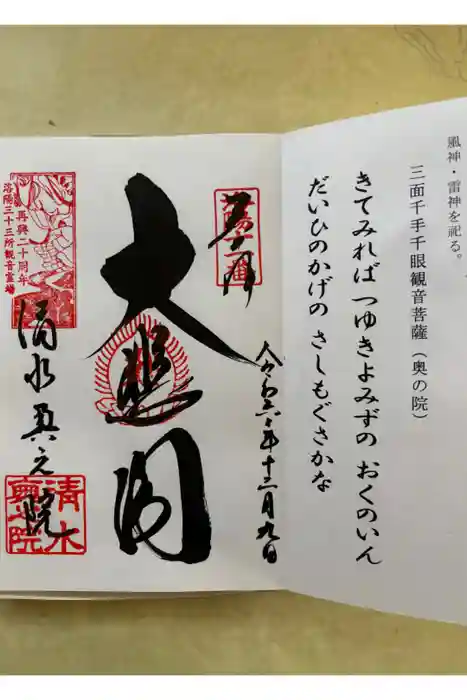 風神・雷神を祀る。
三面千手千眼観音菩薩（奥の院）
きてみれば つゆきよみずの おくのいん
だいひのかげの さしもぐさかな
奉拝
洛陽十一番
令和六年十二月九日
大悲閣
再興二十周年
洛陽三十三所観音霊場
清水奥之院
清水
奥之院